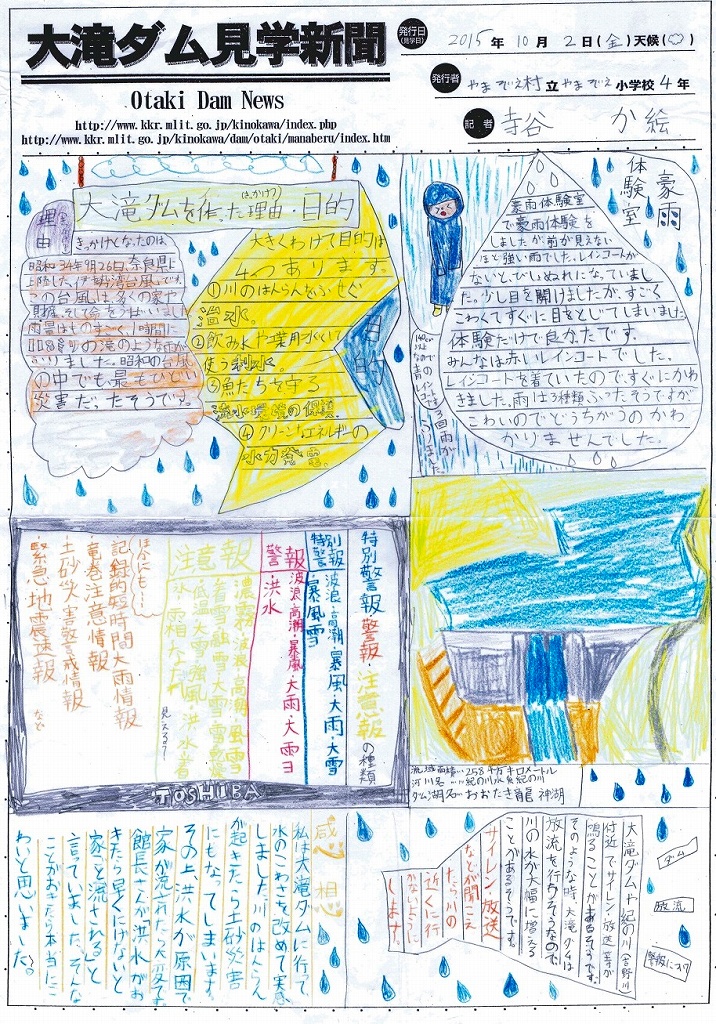 大滝ダム見学新聞
Otaki Dam News
http://www.kkr.mlit.go.jp/kinokawa/index.php
http://www.kkr.mlit.go.jp/kinokawa/dam/otaki/manaberu/index.htm
発行日
(見学日)
2015年10月2日(金)天候(
)
発行者
やまぞえ村立やまぞえ小学校4年
記者
寺谷 か絵
大滝ダムを作った理由・目的
(きっかけ)
理由
きっかけとなったのは、
昭和34年9月26日、奈良県に
上陸した伊勢湾台風です。
この台風は、多くの家や
財産、そして命をうばいました。
雨量はものすごく、1時間に
の滝のような雨が
ふりました。昭和の台風
の中でも最もひどい
災害だったそうです。
目的
大きくわけて目的は
4つあります。
①川のはんらんをふせぐ
治水。
②飲み水や農業用水として
使う利水。
③魚たちを守る
流水環境の保護。
④クリーンなエネルギーの
水力発電。
豪雨体験室
豪雨体験室
で豪雨体験を
しましたが、前が見えない
ほど強い雨でした。レインコートが
ないと、びしょぬれになっていまし
た。少し目を開けましたが、すごく
こわくてすぐに目をとじてしまいました。
体験だけで良かたです。
みんなは赤いレインコートでした。
レインコートを着ていたので、すぐにかわ
きました。雨は3種類、ふったそうですが
こわいのでどうちがうのかわ
かりませんでした。
特別警報・警報・注意報の種類
特別警報
波浪・高潮・暴風・大雨・大雪
・暴風雪
警報
波浪・高潮・暴風・大雨・大雪
洪水
注意報
濃霧・波浪・高潮・風雪
低温・大雪・強風・洪水・着
氷・霜など
見える？
ほかにも…
記録的短時間大雨情報
竜巻注意情報
土砂災害警戒情報
緊急地震速報
など
TOSHIBA
流域面積…258平方キロメートル
河川名…紀の川水系紀の川
ダム湖名…おおたき龍神湖
感想
私は大滝ダムに行って、
水のこわさを改めて実感
しました。川のはんらん
が起きたら土砂災害
にもなってしまいます。
その上洪水が原因で
家が流されたら大変です。
館長さんが洪水がお
きたら早くにげないと
家ごと流されると
言っていました。そんな
ことがおきたら本当にこ
わいと思いました。
ダム
放流
警報について
大滝ダムや紀の川(吉野川)
付近でサイレン・放送等が
鳴ることがあるそうです。
そのような時、大滝ダムは
放流を行うそうなので、
川の水が大幅に増える
ことがあるそうです。
サイレン・放送
などが聞こえ
たら川の
近くに行
かないように
します。